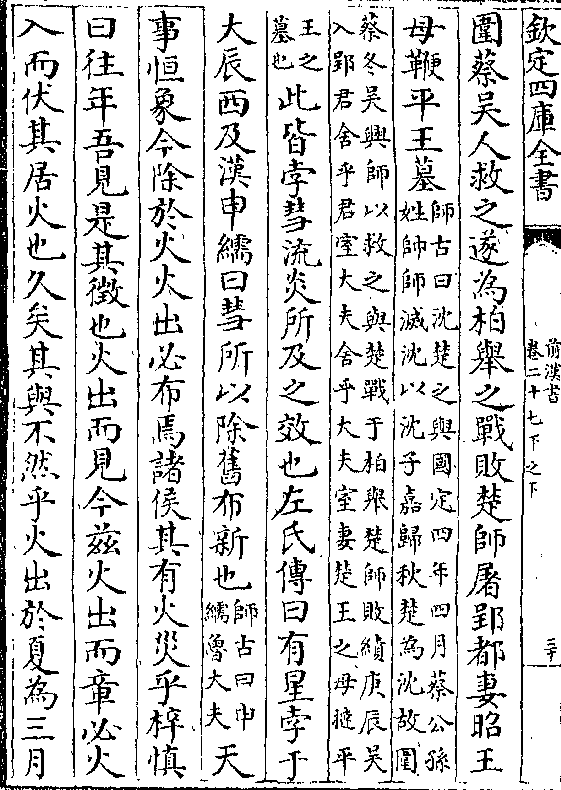 欽定四庫全書
前漢書
卷二十七下之下
圍蔡吳人救之遂為柏舉之戰敗楚師屠郢都妻昭王
母鞭平王墓
師古曰沈楚之與國定四年四月蔡公孫
姓帥師滅沈以沈子嘉歸秋楚為沈故圍
蔡冬吳興師以救之與楚戰于柏舉楚師敗績庚辰吳
入郢君舍乎君室大夫舍乎大夫室妻楚王之母撻平
王之
墓也
此皆孛彗流炎所及之效也左氏傳曰有星孛于
大辰西及漢申繻曰彗所以除舊布新也
師古曰申
繻魯大夫
天
事恒象今除於火火出必布焉諸侯其有火災乎梓慎
曰往年吾見是其徵也火出而見今兹火出而章必火
入而伏其居火也久矣其與不然乎火出於夏為三月